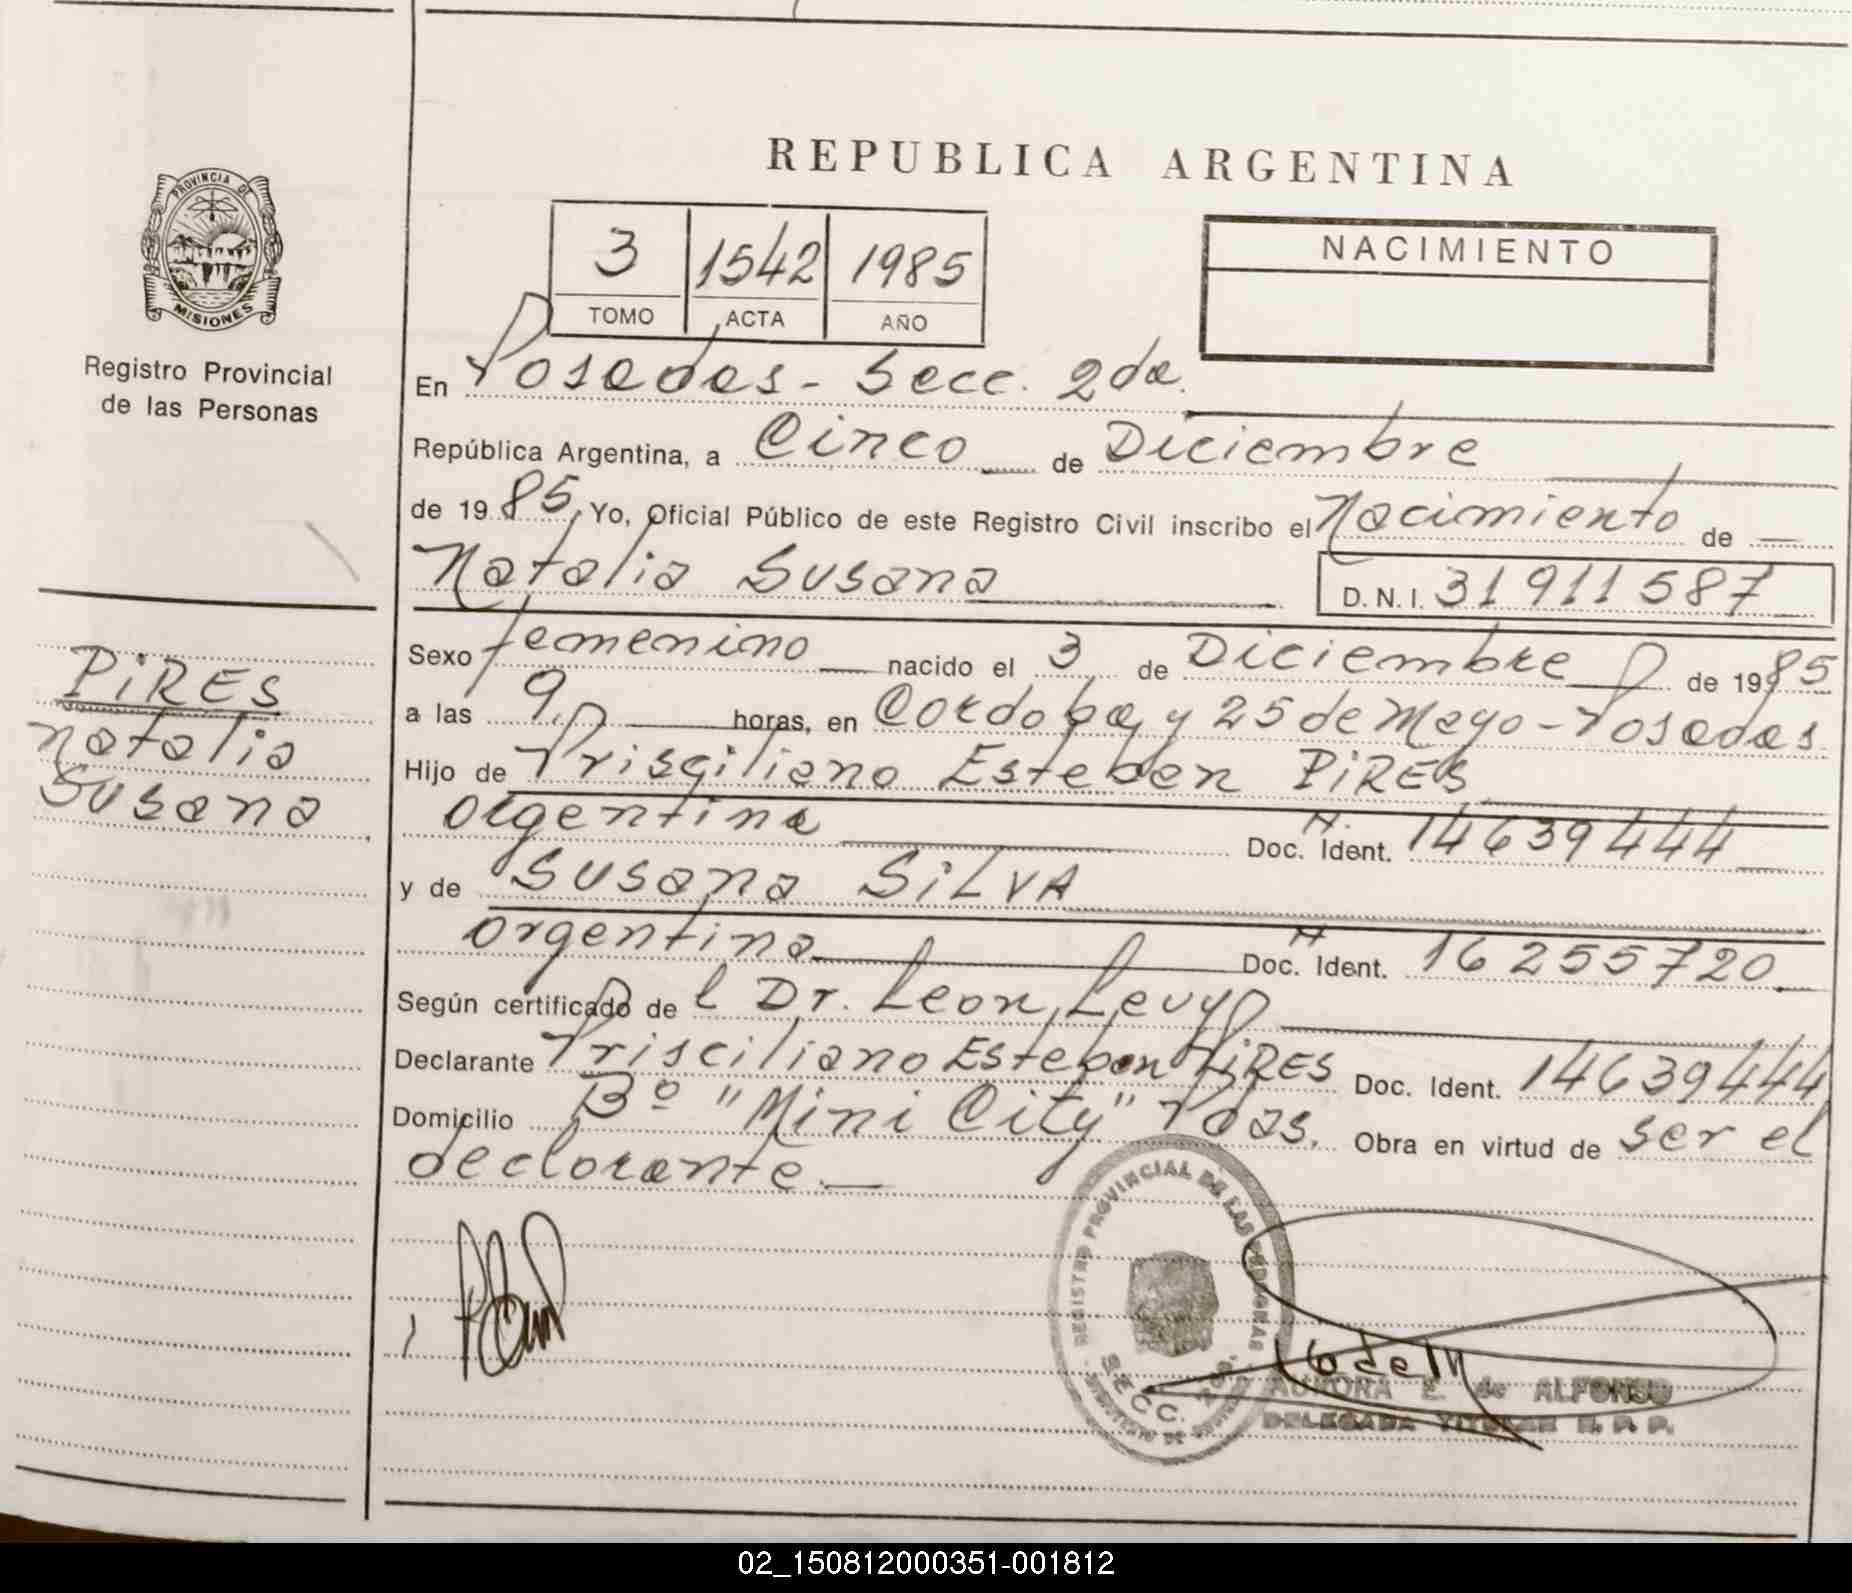 REPUBLICA ARGENTINA
PROVINCIA DE
MISIONES
Registro Provincial
de las Personas
3 1542 1985
TOMO ACTA AÑO
NACIMIENTO
En Posadas - Secc. 2da.
República Argentina, a Cinco de Diciembre
de 1985, Yo, Oficial Público de este Registro Civil inscribo el Nacimiento de
Natalia Susana
D.N.I. 31911587
Sexo femenino nacido el 3 de Diciembre de 1985
a las 9. horas, en Cordoba y 25 de Mayo - Posadas
Hijo de Prisciliano Esteban PiRES
argentina Doc. Ident. M. 14639444
y de Susana SiLVA
argentina Doc. Ident. 16255720
Según certificado del Dr. Leon Levy
Declarante Prisciliano Esteban PiRES Doc. Ident. 14639444
Domicilio Bº "Mini City" Pdas. Obra en virtud de ser el
declarante.
PiRES
Natalia
Susana
REGISTRO PROVINCIAL DE LAS PERSONAS
SECC.
AURORA E. de ALFONSO
DELEGADA TITULAR R. P. P.
02_150812000351-001812